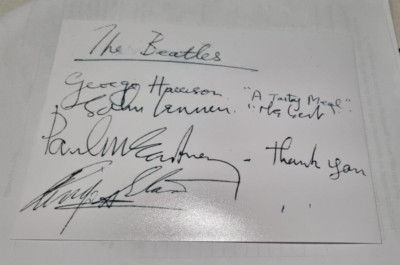 The Beatles
George Harrison. "A Tasty Meal"
John Lennon. "The best
Paul McCartney - thank you
Ringo Starr